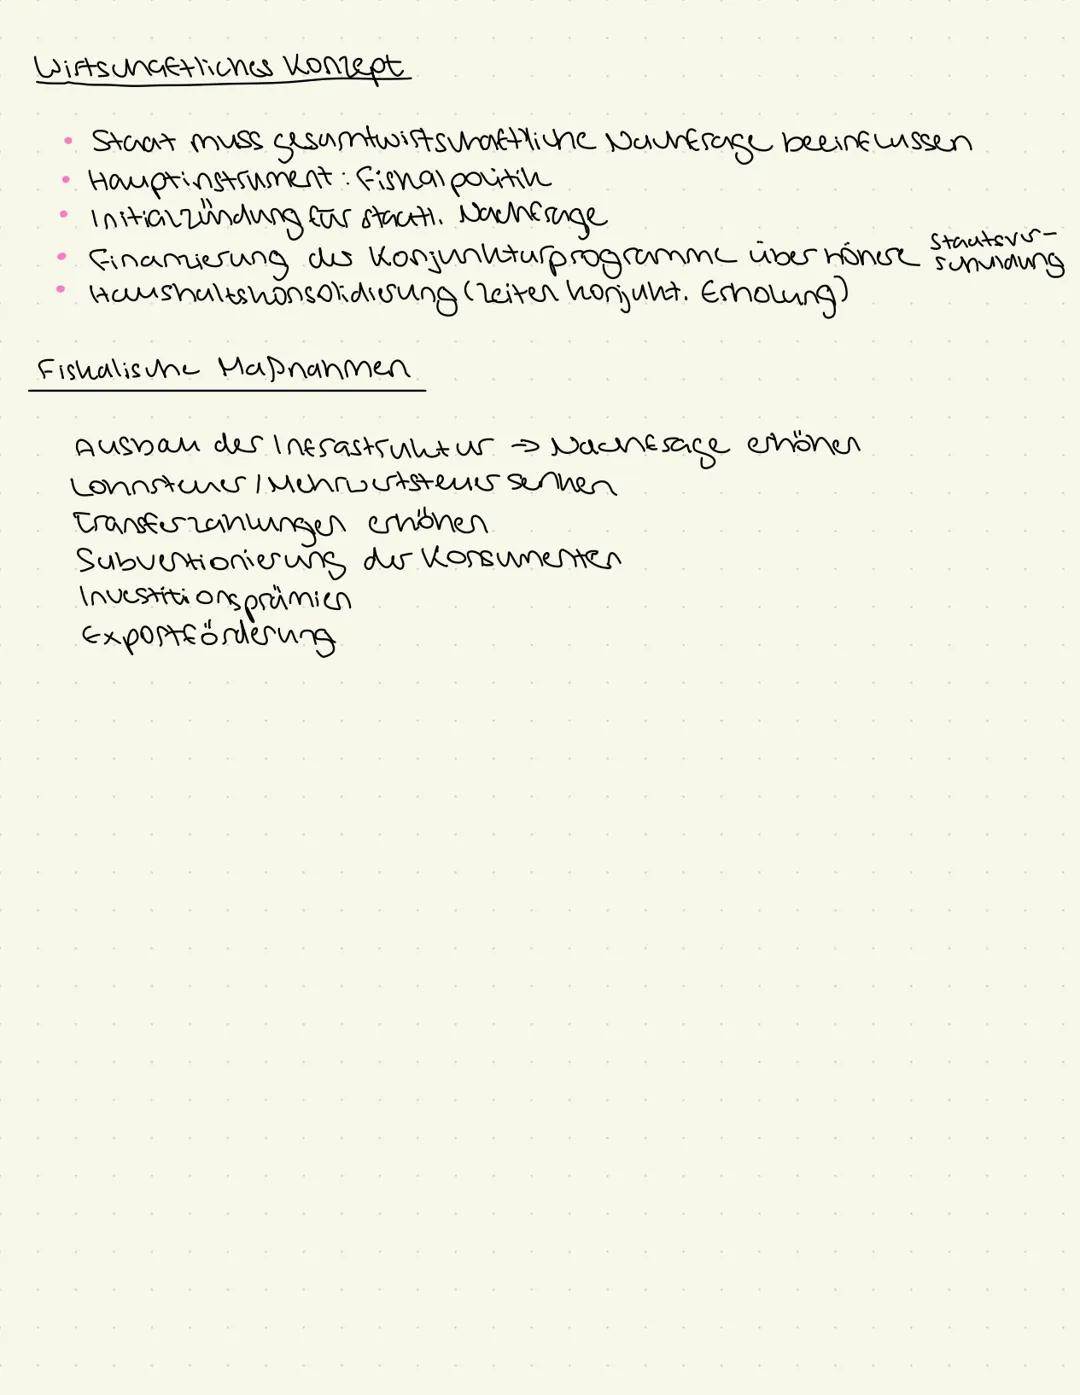 Wirtschaftliches Konzept
• Staat muss gesamtwirtschaftliche Nachfrage beeinflussen
• Hauptinstrument: Fiskalpolitik
• Initialzündung für staatl. Nachfrage
• Finanzierung der Konjunkturprogramme über höhere Staatsver-
schuldung
• Haushaltskonsolidierung (Zeiten konjukt. Erholung)
Fiskalische Maßnahmen
Ausbau der Infrastruktur → Nachfrage erhöhen
Lohnsteuer / Mehrwertsteuer senken
Transferzahlungen erhöhen
Subventionierung der Konsumenten
Investitionsprämien
Exportförderung